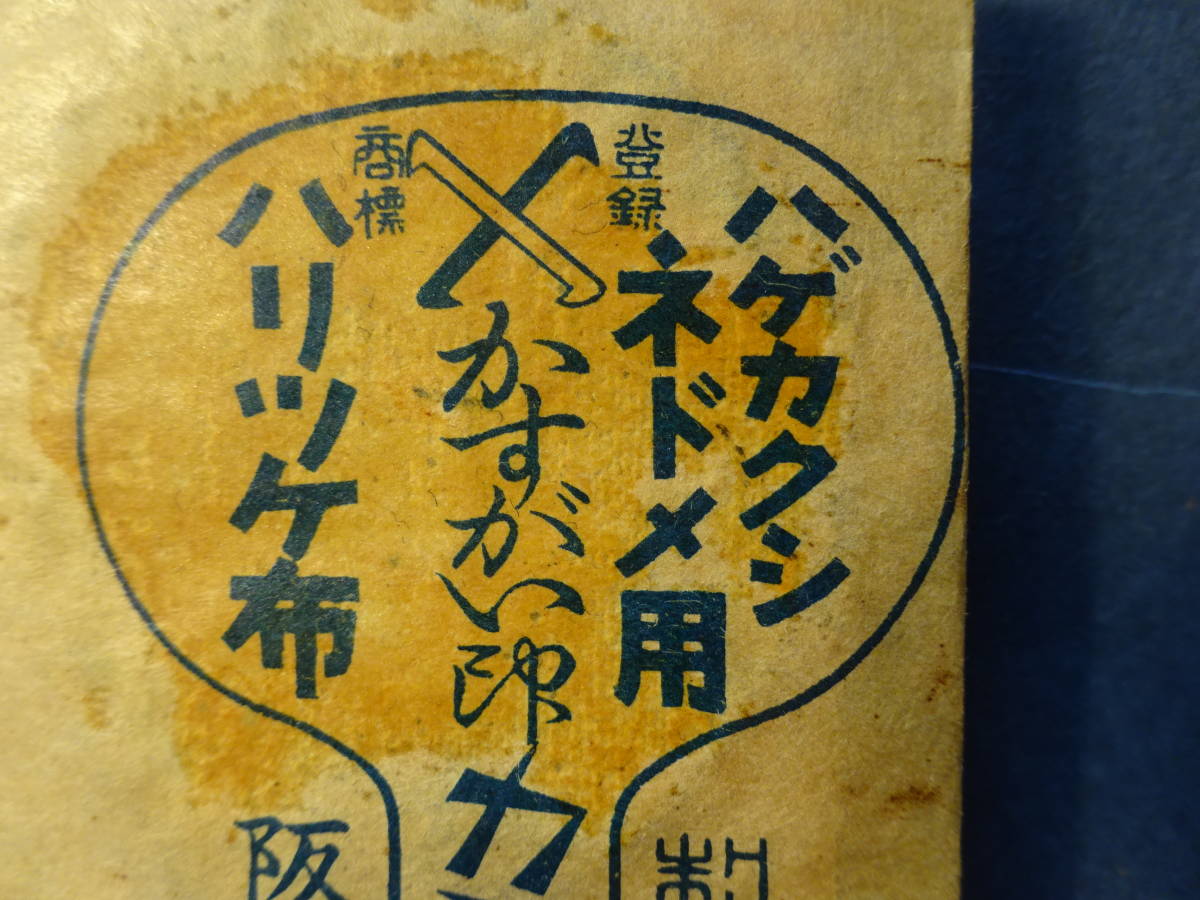 ハゲカクシ
ネドメ用
登録
商標
かすがい印カ
ハリツケ布
製
阪